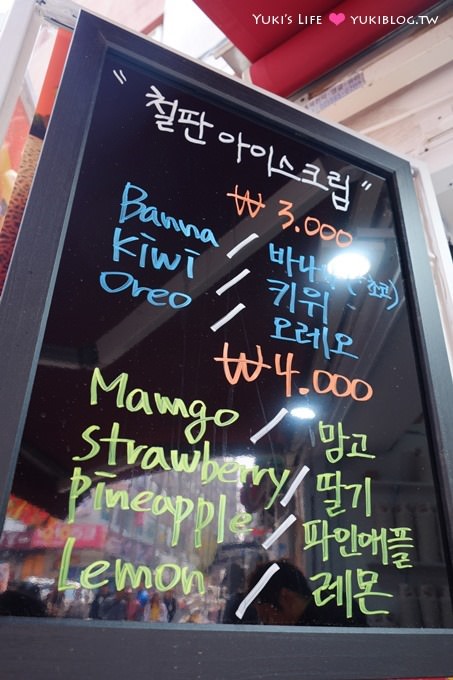 YUKI'S LIFE ♥ YUKIBLOG.TW
" 철판 아이스크림 "
₩ 3.000
Banna / 바나나 (초코)
kiwi / 키위
Oreo / 오레오
₩4.000
Mamgo / 맘고
strawberry / 딸기
pineapple / 파인애플
Lemon / 레몬